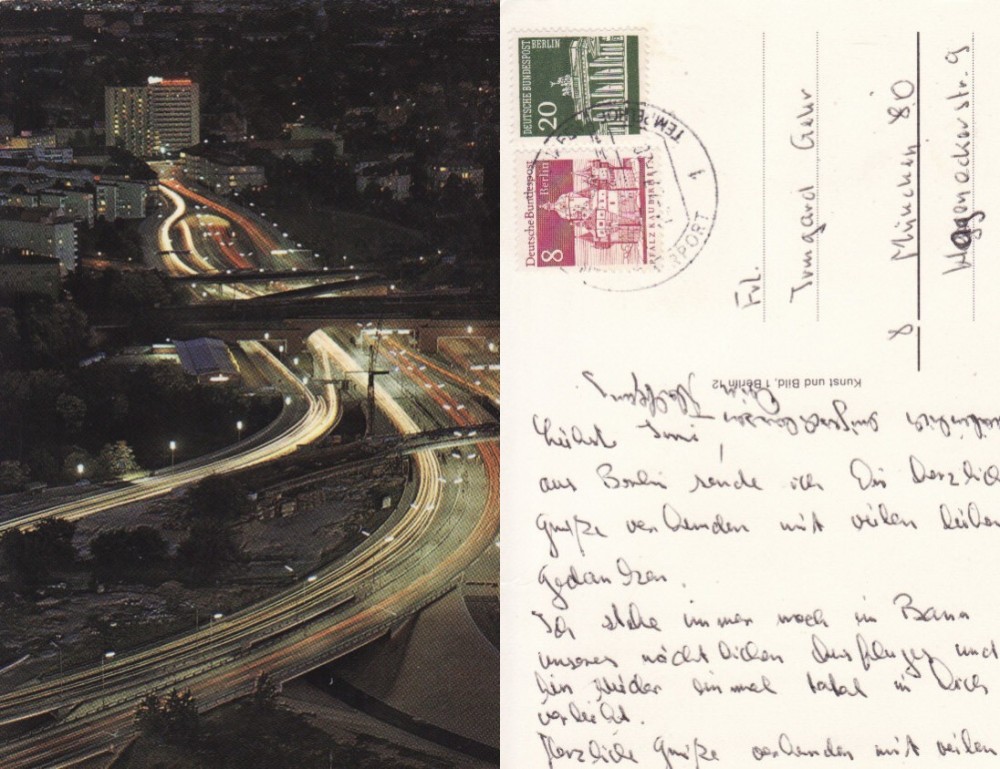 DEUTSCHE BUNDESPOST
BERLIN
20
Deutsche Bundespost
Berlin
8
PFALZ KAUB/RHEIN
TEMPELHOF
1
Frl.
Irmgard Gehr
8 München 80
Weggenackerstr. 9
Kunst und Bild, 1 Berlin 12
Wolfgang
Dein
Liebst Irmi,
aus Berlin sende ich Dir herzlich
Grüße verbunden mit vielen lieben
Gedanken.
Ich stehe immer noch im Bann
unseres nächtlichen Ausfluges und
bin wieder einmal total in Dich
verliebt.
Herzliche Grüße verbunden mit vielen